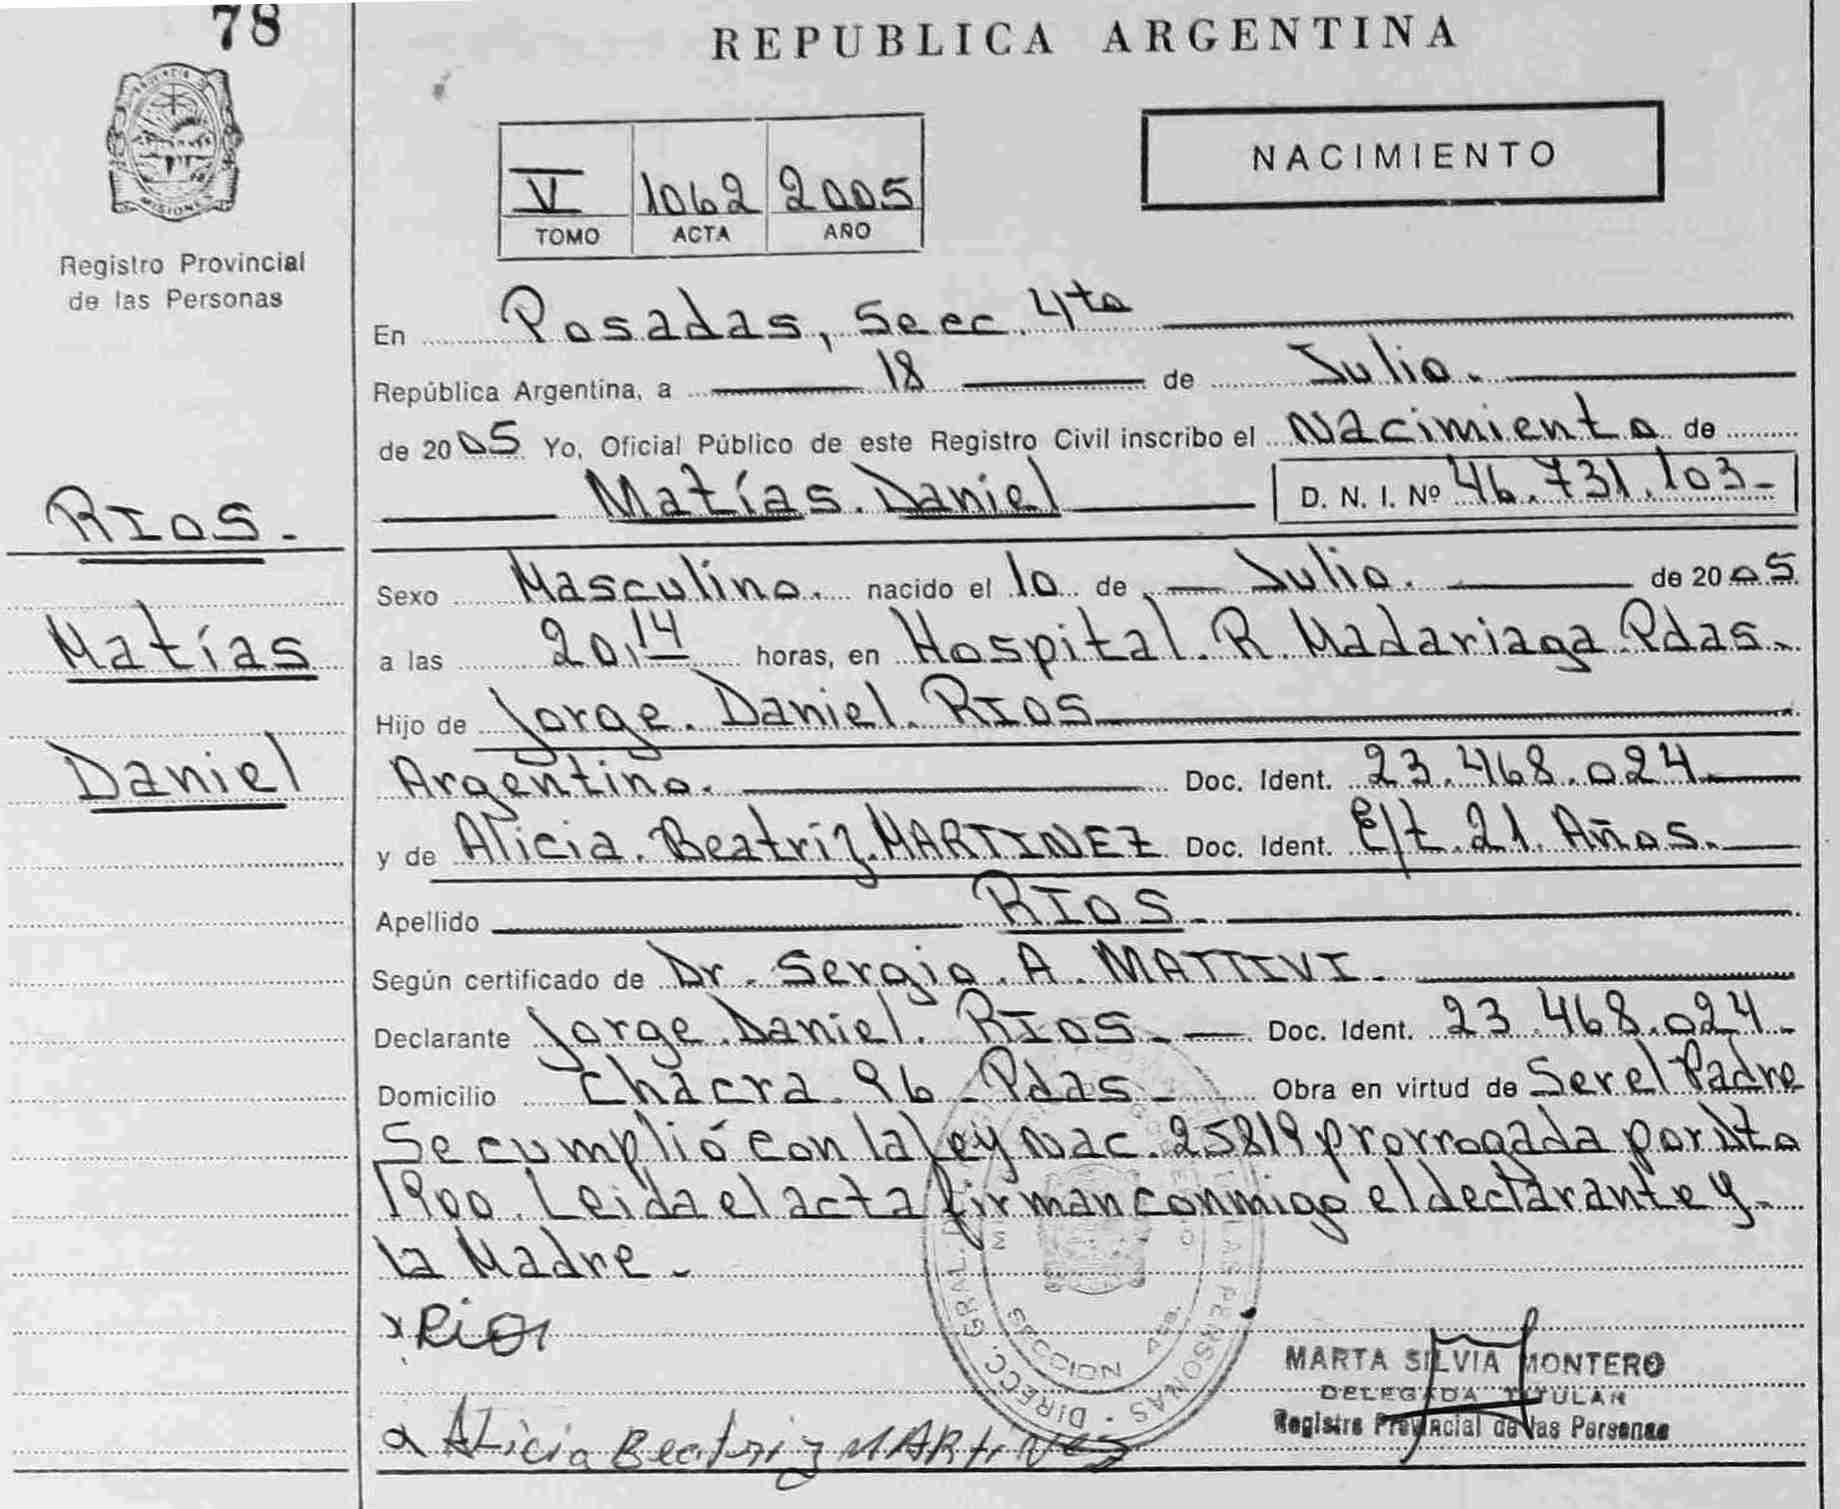 78
REPUBLICA ARGENTINA
MISIONES
Registro Provincial
de las Personas
NACIMIENTO
V 1062 2005
TOMO ACTA AÑO
En Posadas, Secc. 4ta
República Argentina, a 18 de Julio.
de 2005 Yo, Oficial Público de este Registro Civil inscribo el Nacimiento de
Matías. Daniel D. N. I. Nº 46.731.103-
RIOS.-
Matías
Daniel
Sexo Masculino. nacido el 10 de Julio. de 2005
a las 20,14 horas, en Hospital. R. Madariaga. Pdas.-
Hijo de Jorge. Daniel. RIOS
Argentino. Doc. Ident. 23.468.024.
y de Alicia. Beatríz. MARTINEZ Doc. Ident. E/t. 21. Años.
Apellido RIOS
Según certificado de Dr. Sergio. A. MATTIVI.
Declarante Jorge. Daniel. RIOS.- Doc. Ident. 23.468.024.-
Domicilio Chacra. 96. Pdas.- Obra en virtud de Ser el Padre
Se cumplió con la Ley Nac. 25819 prorrogada por Dto
1900. Leida el acta firman conmigo el declarante y
la Madre.-
x Rios
Alicia Beatriz MARTINEZ
DIRECC. GRAL. PERSONAS
SECCION 4ta.
MARTA SILVIA MONTERO
DELEGADA TITULAR
Registro Provincial de las Personas